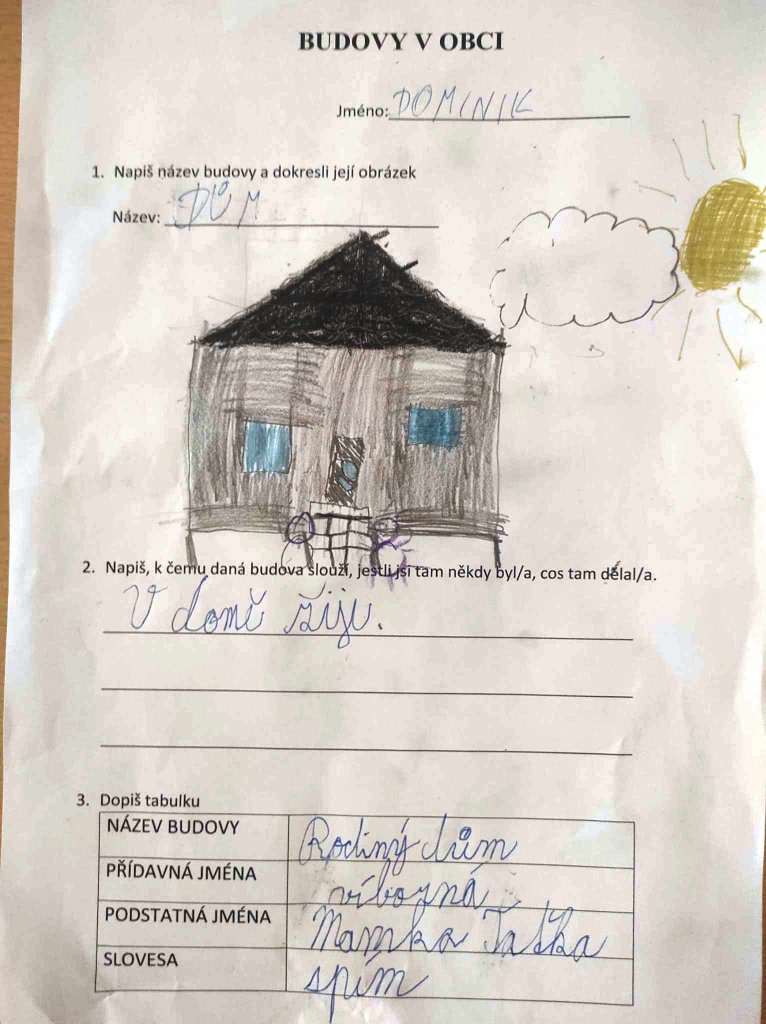 BUDOVY V OBCI
Jméno: DOMINIK
1. Napiš název budovy a dokresli její obrázek
Název: DŮM
2. Napiš, k čemu daná budova slouží, jestli jsi tam někdy byl/a, cos tam dělal/a.
V domě žiju.
3. Dopiš tabulku
NÁZEV BUDOVY Rodiný dům
PŘÍDAVNÁ JMÉNA víborná
PODSTATNÁ JMÉNA Mamka Taťka
SLOVESA spím